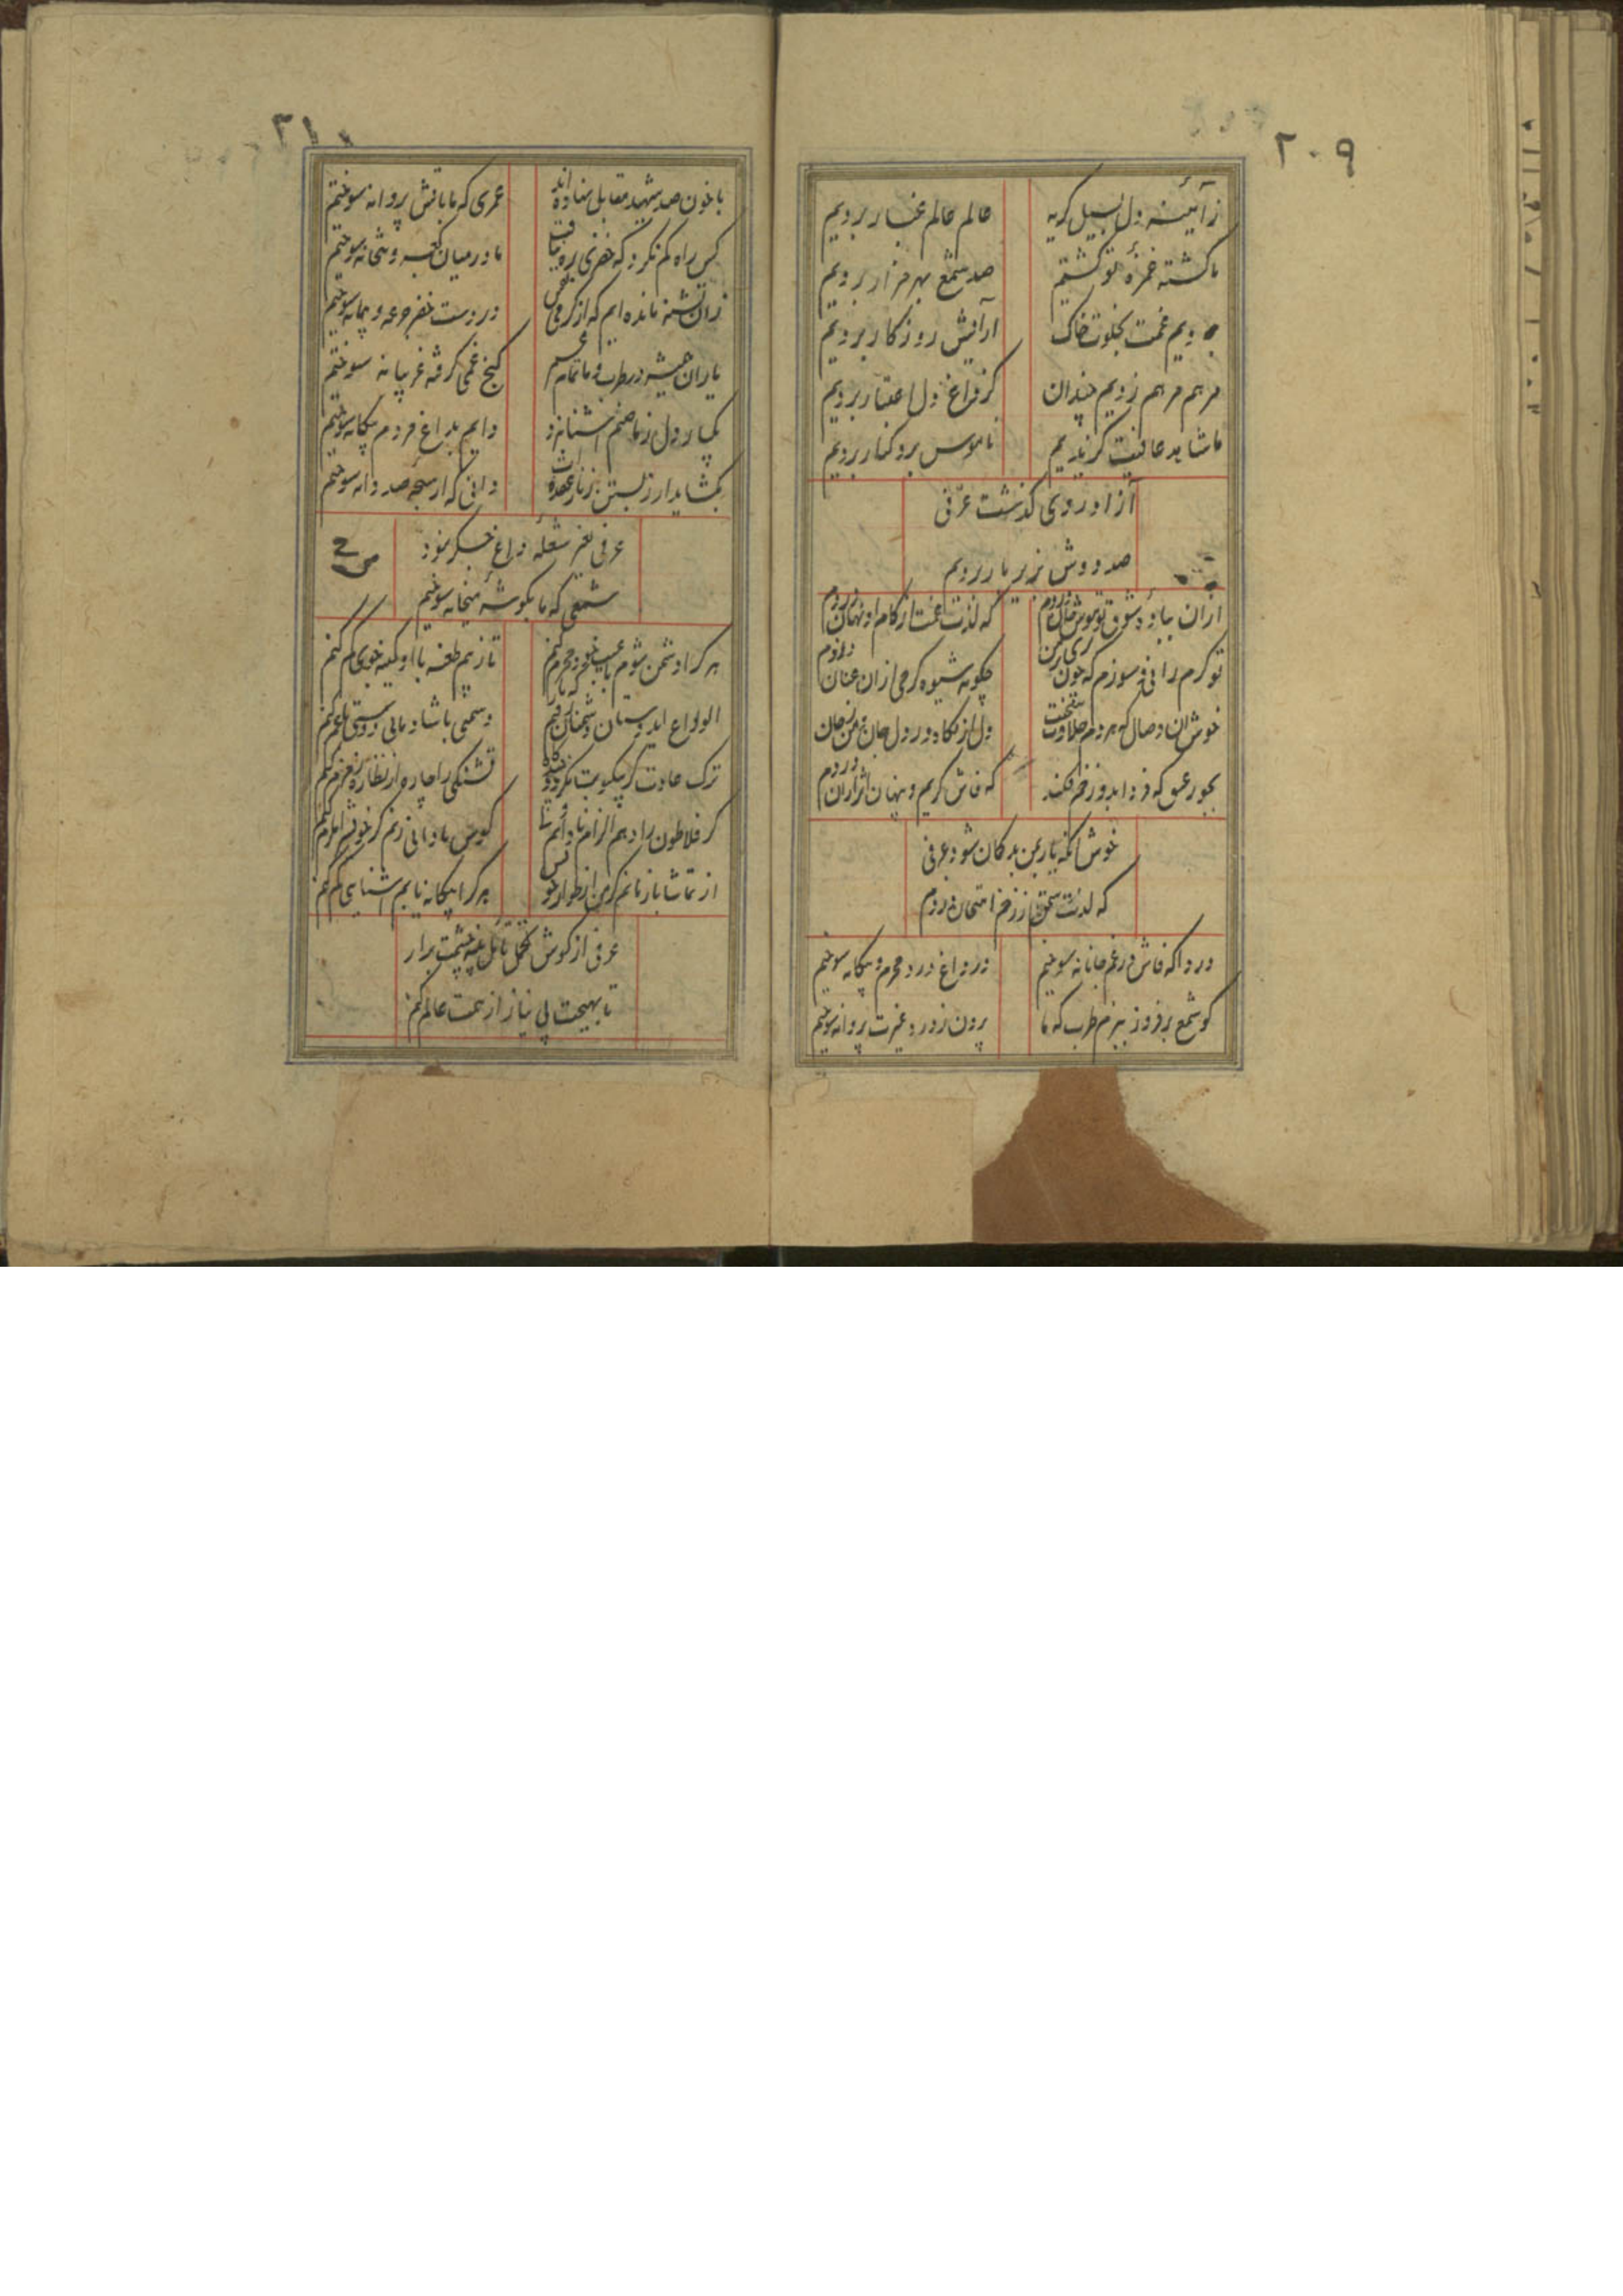 ۲۰۹
ز آئینه دل بسیل گریه
عالم عالم غبار بردیم
ما کشته غمزهٔ تو گشتیم
صد شمع بهر مزار بردیم
بردیم غمت بخلوت خاک
آرایش روزگار بردیم
مرهم مرهم زدیم چندان
کز داغ دل اعتبار بردیم
ما شاید عافیت گزیدیم
ناموس بر و کنار بردیم
آزاد روی گذشت عرفی
صد دوش بزیر بار بردیم
ازان بباد
که لذت غمت از کام او نهان دزدم
تو گرم رانی و سوزم که چون
چگونه شیوه گرمی ازان عنان دزدم
خوش ان وصال که هر دم حلاوت
دل از نگاه و
که فاش گریم و پنهان اثر ازان دزدم
خوش انکه یار بمن بدگمان شود عرفی
که لذت ستمش از زخم امتحان دزدم
دردا که فاش در غم جانانه سوختیم
در داغ درد محرم و بیگانه سوختیم
گو شمع برفروز ببزم طرب که ما
پروانه سوختیم
۲۱۰
با خون صد شهید مقابل نهاده اند
عمری که ما باتش پروانه سوختیم
کس راه کم نکرد که خضری ره نیافت
ما درمیان کعبه و بتخانه سوختیم
زان تشنه مانده ایم که از گرمی نفس
در دست خضر جرعه و پیمانه سوختیم
یاران همیشه در طرب و ما تمام عمر
کنج غمی گرفته غریبانه سوختیم
یکبار دل ز ما صنم آشنا نبرد
دایم بداغ مردم بیگانه سوختیم
بگشاید ار ز بستن زنار عقده
دانی که از سبحه صد دانه سوختیم
عرفی بغیر شعله داغ جگر نبود
شمعی که ما بگوشه میخانه سوختیم
هر کرا دشمن شوم با عیب خود محرم کنم
تا ز بیم طعنه با او کینه جوئی کم کنم
الوداع ای دوستان
دشمنی با شادمانی دوستی با غم کنم
ترک عادت گر
تشنگی را چاره از نظاره زمزم کنم
گر فلاطون را دهم الزام نادانیم
کوس نادانی زنم گر خویش را ملزم کنم
از تماشا باز مانم
هر کرا بیگانه یابم آشنایی کم کنم
عرفی از گوش
تا بهیچت بی نیاز از نعمت عالم کنم